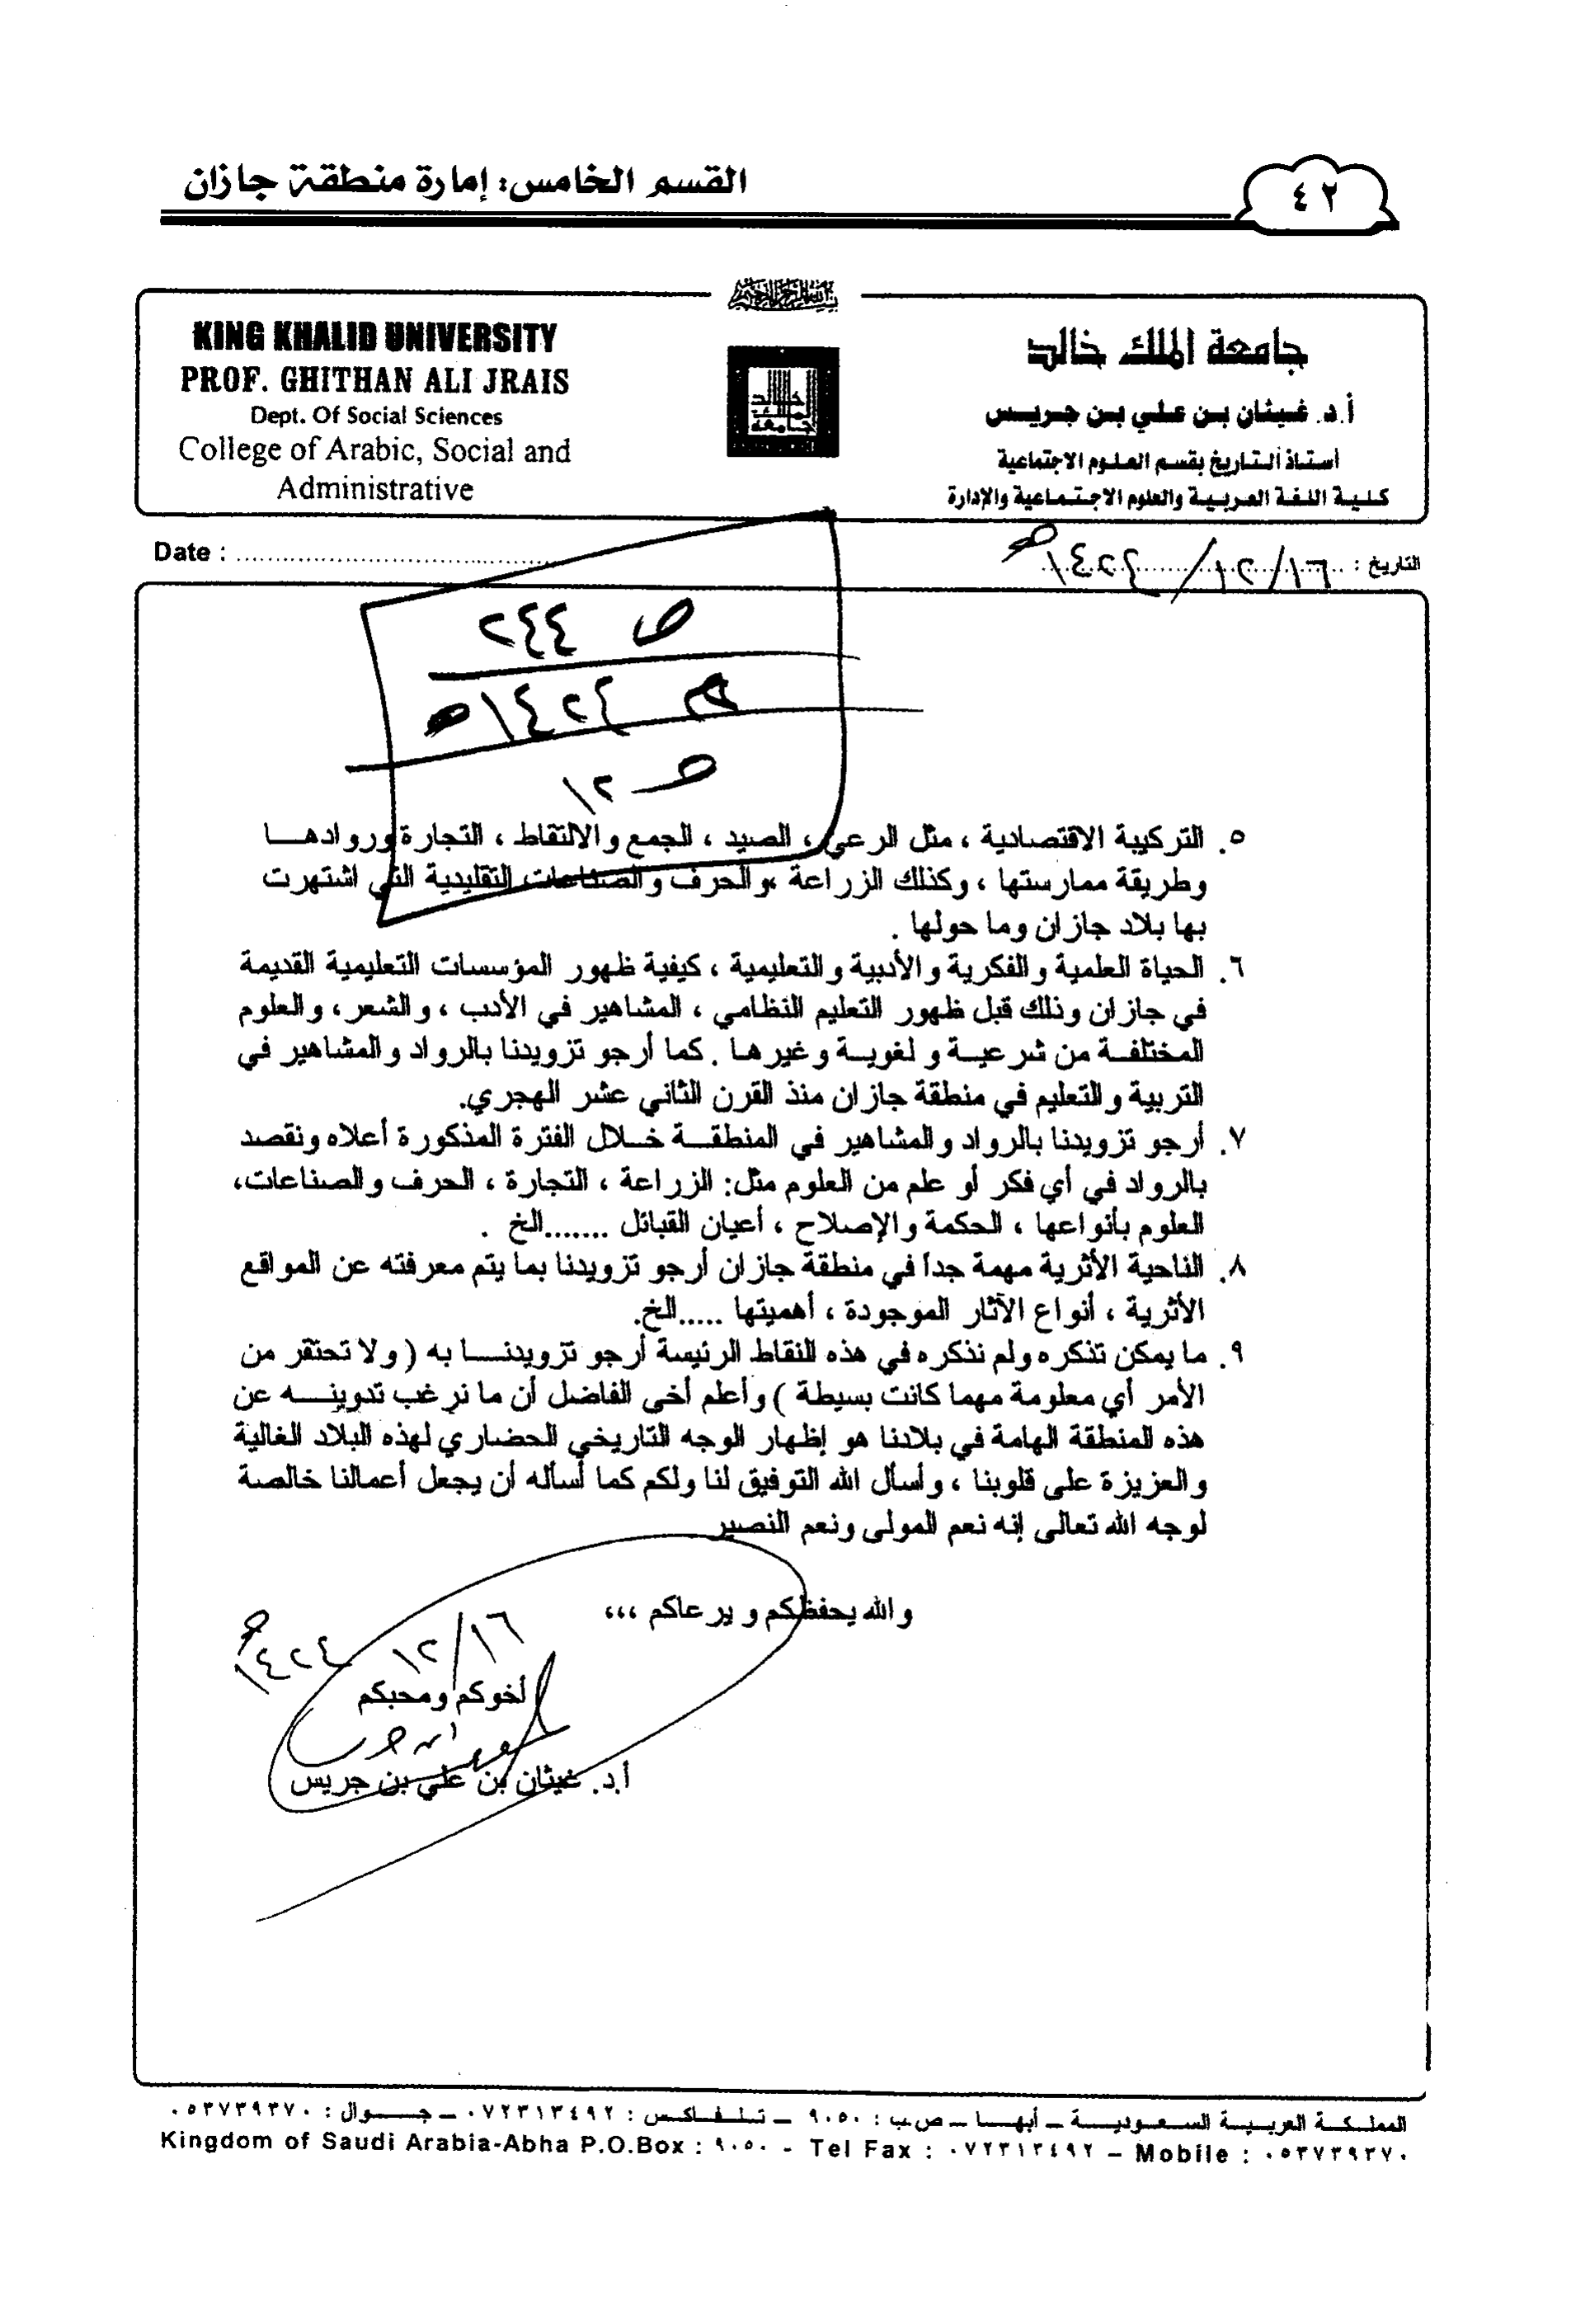 ٤٢
القسم الخامس: إمارة منطقة جازان
بسم الله الرحمن الرحيم
جامعة الملك خالد
أ.د. غيثان بن علي بن جريس
أستاذ التاريخ بقسم العلوم الاجتماعية
كلية اللغة العربية والعلوم الاجتماعية والإدارة
KING KHALID UNIVERSITY
PROF. GHITHAN ALI JRAIS
Dept. Of Social Sciences
College of Arabic, Social and
Administrative
التاريخ : ١٦/١٢/١٤٢٤هـ
Date :
ص ٢٤٤
١٤٢٤هـ
ص ١٢
٥. التركيبة الاقتصادية ، مثل الرعي ، الصيد ، الجمع والالتقاط ، التجارة وروادهـــا
وطريقة ممارستها ، وكذلك الزراعة ،والحرف والصناعات التقليدية التي اشتهرت
بها بلاد جازان وما حولها .
٦. الحياة العلمية والفكرية والأدبية والتعليمية ، كيفية ظهور المؤسسات التعليمية القديمة
في جازان وذلك قبل ظهور التعليم النظامي ، المشاهير في الأدب ، والشعر، والعلوم
المختلفــة من شرعيــة و لغويــة وغيرهـا . كما أرجو تزويدنا بالرواد والمشاهير في
التربية والتعليم في منطقة جازان منذ القرن الثاني عشر الهجري.
٧. أرجو تزويدنا بالرواد والمشاهير في المنطقــة خــلال الفترة المذكورة أعلاه ونقصد
بالرواد في أي فكر أو علم من العلوم مثل: الزراعة ، التجارة ، الحرف والصناعات،
العلوم بأنواعها ، الحكمة والإصلاح ، أعيان القبائل .......الخ .
٨. الناحية الأثرية مهمة جداً في منطقة جازان أرجو تزويدنا بما يتم معرفته عن المواقع
الأثرية ، أنواع الآثار الموجودة ، أهميتها .....الخ.
٩. ما يمكن تذكره ولم نذكره في هذه النقاط الرئيسة أرجو تزويدنـــا به ( ولا تحتقر من
الأمر أي معلومة مهما كانت بسيطة ) وأعلم أخى الفاضل أن ما نرغب تدوينـــه عن
هذه المنطقة الهامة في بلادنا هو إظهار الوجه التاريخي الحضاري لهذه البلاد الغالية
والعزيزة على قلوبنا ، وأسأل الله التوفيق لنا ولكم كما أسأله أن يجعل أعمالنا خالصة
لوجه الله تعالى إنه نعم المولى ونعم النصير
والله يحفظكم ويرعاكم ،،،
١٦/١٢
١٤٢٤هـ
أخوكم ومحبكم
أ.د. غيثان بن علي بن جريس
المملكـة العربيـة السعـوديـة – أبهـا – ص.ب : ٩٠٥٠ – تـلـفـاكـس : ٠٧٢٣١٣٤٩٢ – جــوال : ٠٥٣٧٣٩٣٧٠
Kingdom of Saudi Arabia-Abha P.O.Box : ٩٠٥٠ - Tel Fax : ٠٧٢٣١٣٤٩٢ – Mobile : ٠٥٣٧٣٩٣٧٠